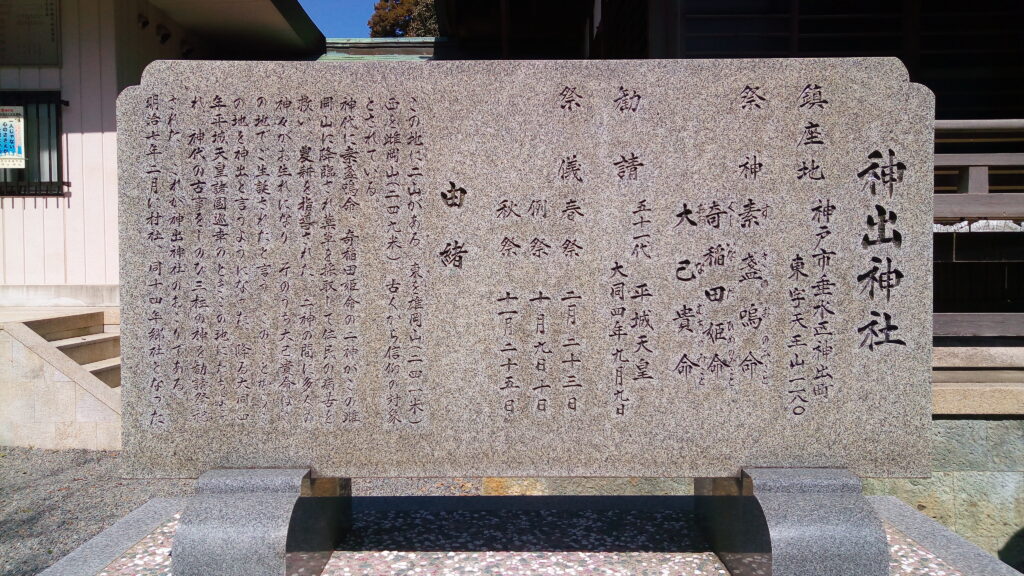 神出神社
鎮座地 神戸市垂水区神出町
東字天王山一一八〇
祭神 素盞嗚命
奇稲田姫命
大己貴命
勧請 五十一代 平城天皇
大同四年九月九日
祭儀 春祭 二月二十三日
例祭 十月九日十日
秋祭 十一月二十五日
由緒
この地に二山がある 東を雄岡山(二四一米)
西を雌岡山(二四九米) 古くから信仰の対象
とされている
神代に素盞嗚命 奇稲田姫命の二神がこの雌
岡山に降臨され薬草を採取して住民の病苦を
救い 農耕を指導された 二神の間に多くの
神々がお生れになり そのうち大己貴命は
の地でご生誕されたと言う
の地を神出と言うようになった 降る大同四
年平城天皇諸国巡幸のときこの地に
れ 神代の古
された れが神出神社の
明治七年二月に村社 同十四年郷社となった